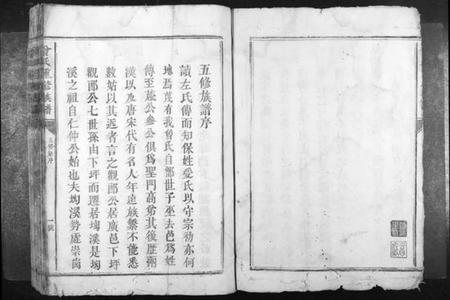 五修族譜序
讀左氏傳而知保姓受氏以守宗祊亦何
地爲蔑有我曾氏自鄫世子巫去邑爲姓
傳至蒧公參公俱爲聖門高弟其後歷兩
漢以及唐宋代有名人年遠族繁不能悉
數姑以其近者言之觀郎公居廣邑下坪
觀郎公七世孫由下坪而遷居坳溪是坳
溪之祖自仁仲公始也夫坳溪勢處崇崗
曾氏重修族譜
一號